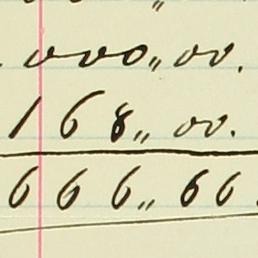 000,, 00.
168,, 00.
666,, 66.